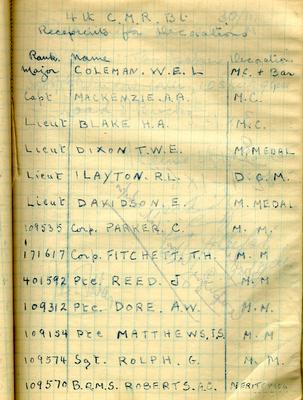 4th C.M.R. Bt.
Receipents for Decorations
Rank. Name Decoration
Major COLEMAN. W.E.L M.C. + Bar
Capt MACKENZIE. A.A. M.C.
Lieut BLAKE H.A. M.C.
Lieut DIXON T.W.E. M. MEDAL
Lieut LAYTON. R.L. D.C.M.
Lieut DAVIDSON. E. M. MEDAL
109535 Corp. PARKER, C. M. M.
171617 Corp. FITCHETT, T.H. M. M
401592 Pte. REED. J M. M
109312 Pte. DORE. A.W. M. M.
109154 Pte MATTHEWS, I.S. M. M
109574 Sgt. ROLPH. G. M. M.
109570 ROBERTS. A.C.